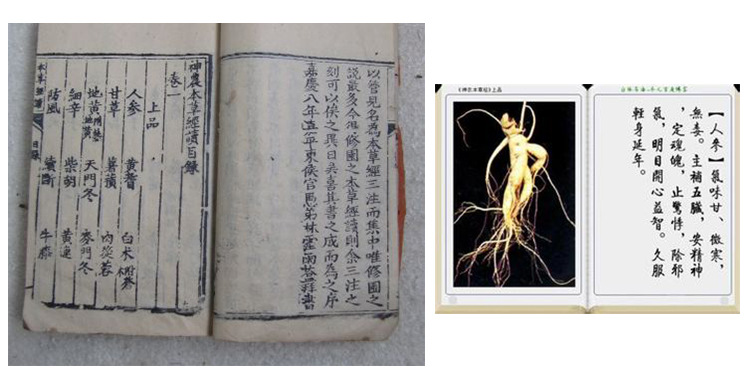 以管見名為本草經三注而集中唯修園之
說最多今得修園之本草經讀則余三注之
刻可以俟之異日矣喜其書之成而為之序
嘉慶八年 東侯官愚弟林 書
神農本草經讀目錄
卷一
上品
人參 黃耆 白朮
甘草 薯蕷 肉蓯蓉
地黃 天門冬 麥門冬
細辛 柴胡 黃連
防風 續斷 牛膝
目錄
《神农本草经》上品
【人參】氣味甘、微寒，
無毒。主補五臟，安精神
，定魂魄，止驚悸，除邪
氣，明目開心益智。久服
輕身延年。